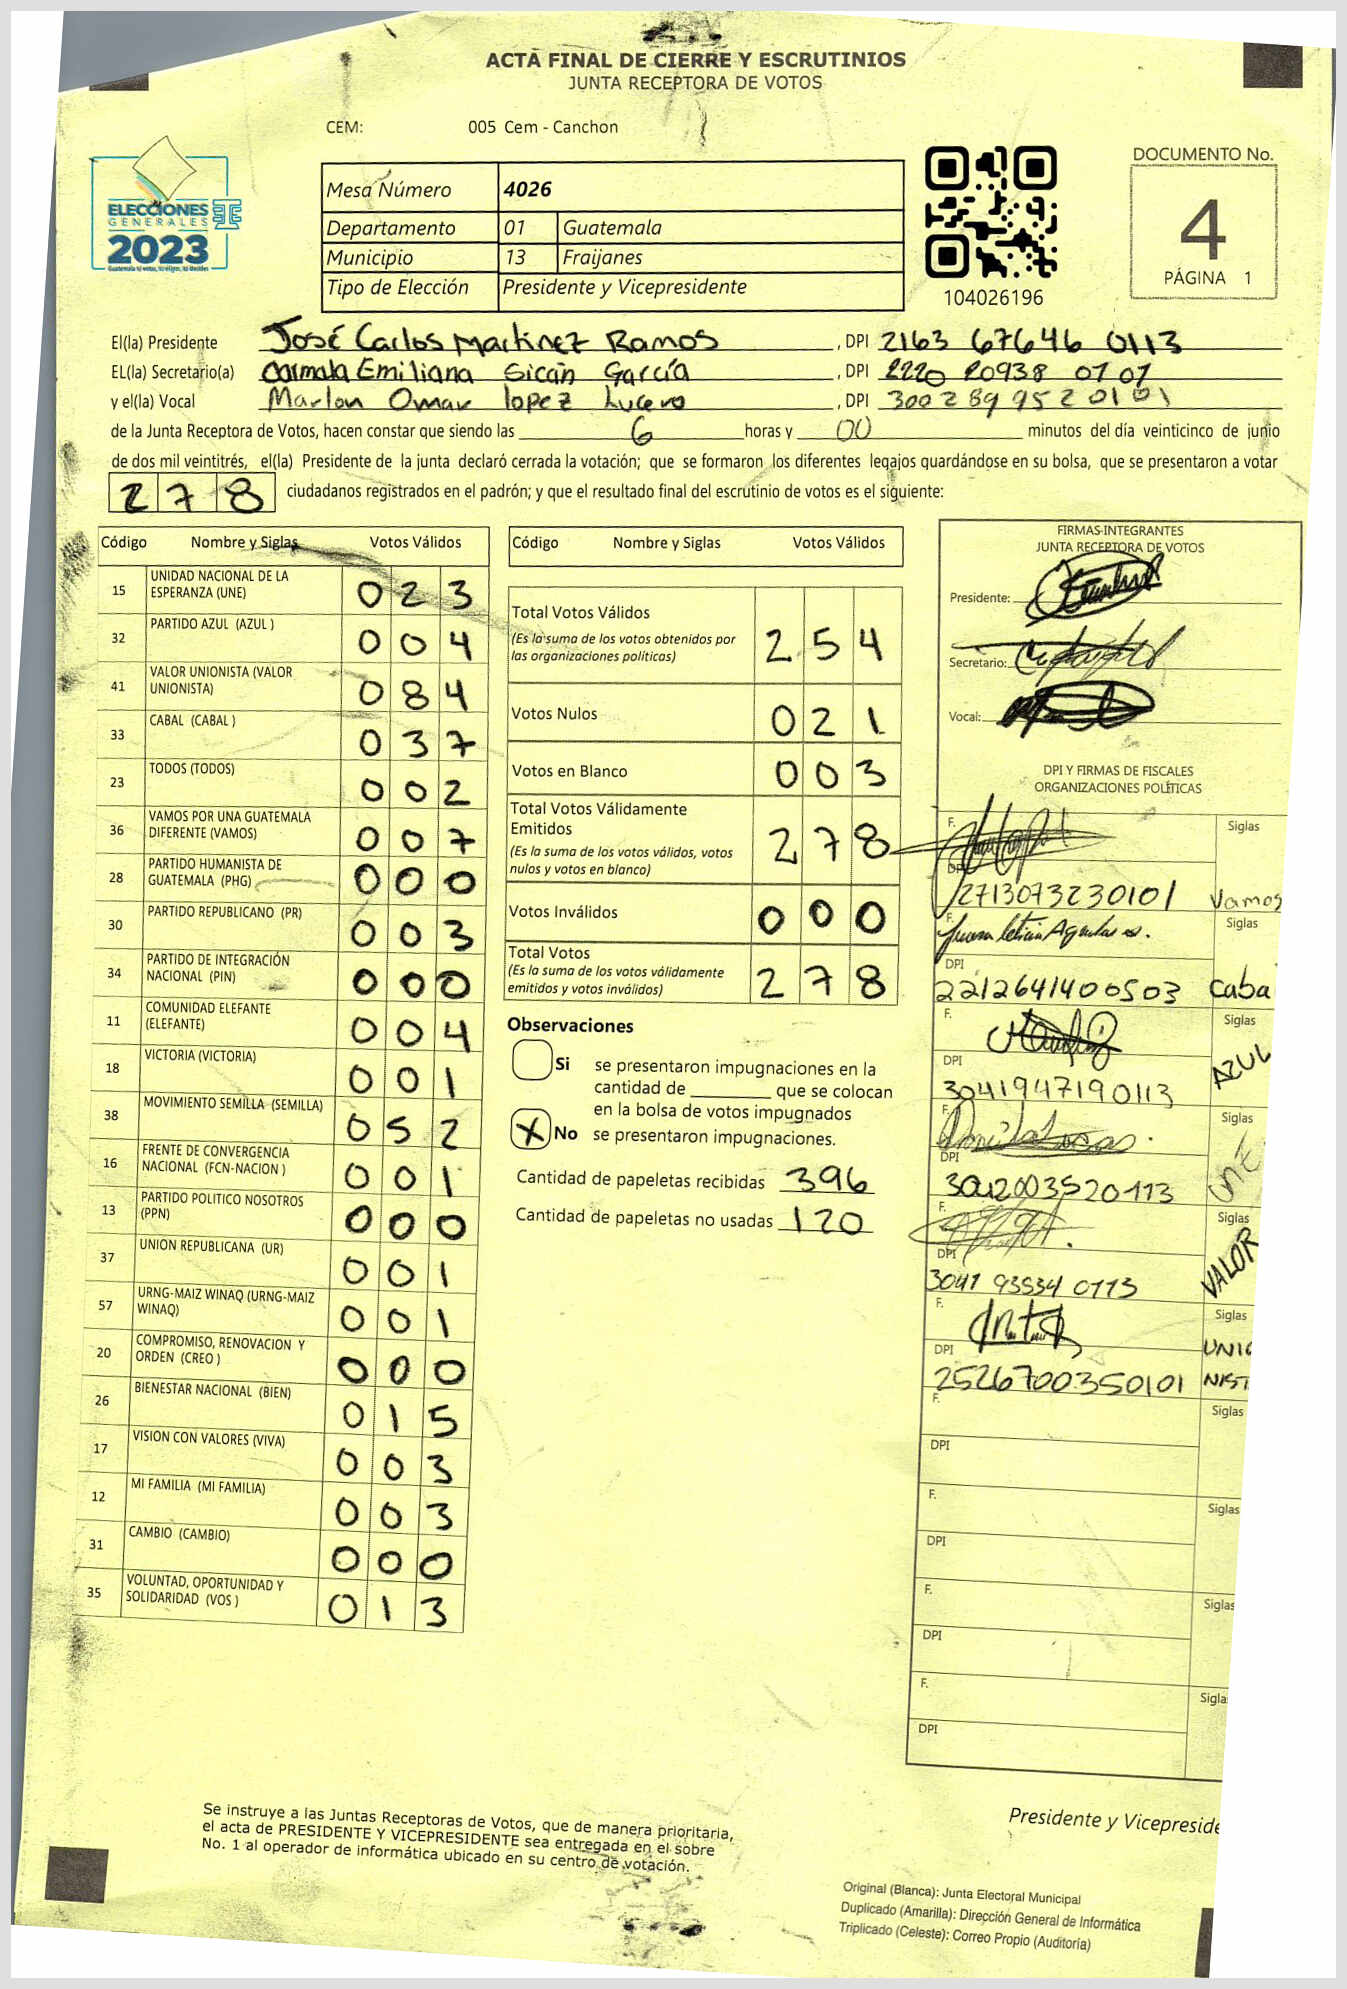 ACTA FINAL DE CIERRE Y ESCRUTINIOS
JUNTA RECEPTORA DE VOTOS
CEM: 005 Cem - Canchon
ELECCIONES
GENERALES
2023
Mesa Número 4026
Departamento 01 Guatemala
Municipio 13 Fraijanes
Tipo de Elección Presidente y Vicepresidente
104026196
DOCUMENTO No.
4
PÁGINA 1
El(la) Presidente José Carlos Martinez Ramos, DPI 2163 67646 0113
EL(la) Secretario(a) Carmala Emiliana Sicán García, DPI 2220 20938 0101
y el(la) Vocal Marlon Omar lopez Lucero, DPI 3002899520101
de la Junta Receptora de Votos, hacen constar que siendo las 6 horas y 00 minutos del día veinticinco de junio
de dos mil veintitrés, el(la) Presidente de la junta declaró cerrada la votación; que se formaron los diferentes legajos quardándose en su bolsa, que se presentaron a votar
278 ciudadanos registrados en el padrón; y que el resultado final del escrutinio de votos es el siguiente:
Código Nombre y Siglas Votos Válidos
15 UNIDAD NACIONAL DE LA ESPERANZA (UNE) 023
32 PARTIDO AZUL (AZUL ) 004
41 VALOR UNIONISTA (VALOR UNIONISTA) 084
33 CABAL (CABAL ) 037
23 TODOS (TODOS) 002
36 VAMOS POR UNA GUATEMALA DIFERENTE (VAMOS) 007
28 PARTIDO HUMANISTA DE GUATEMALA (PHG) 000
30 PARTIDO REPUBLICANO (PR) 003
34 PARTIDO DE INTEGRACIÓN NACIONAL (PIN) 000
11 COMUNIDAD ELEFANTE (ELEFANTE) 004
18 VICTORIA (VICTORIA) 001
38 MOVIMIENTO SEMILLA (SEMILLA) 052
16 FRENTE DE CONVERGENCIA NACIONAL (FCN-NACION ) 001
13 PARTIDO POLITICO NOSOTROS (PPN) 000
37 UNION REPUBLICANA (UR) 001
57 URNG-MAIZ WINAQ (URNG-MAIZ WINAQ) 001
20 COMPROMISO, RENOVACION Y ORDEN (CREO ) 000
26 BIENESTAR NACIONAL (BIEN) 015
17 VISION CON VALORES (VIVA) 003
12 MI FAMILIA (MI FAMILIA) 003
31 CAMBIO (CAMBIO) 000
35 VOLUNTAD, OPORTUNIDAD Y SOLIDARIDAD (VOS ) 013
Código Nombre y Siglas Votos Válidos
Total Votos Válidos 254
(Es la suma de los votos obtenidos por
las organizaciones políticas)
Votos Nulos 021
Votos en Blanco 003
Total Votos Válidamente
Emitidos 278
(Es la suma de los votos válidos, votos
nulos y votos en blanco)
Votos Inválidos 000
Total Votos 278
(Es la suma de los votos válidamente
emitidos y votos inválidos)
Observaciones
Si se presentaron impugnaciones en la
cantidad de ________ que se colocan
en la bolsa de votos impugnados
X No se presentaron impugnaciones.
Cantidad de papeletas recibidas 396
Cantidad de papeletas no usadas 120
FIRMAS-INTEGRANTES
JUNTA RECEPTORA DE VOTOS
Presidente:
Secretario:
Vocal:
DPI Y FIRMAS DE FISCALES
ORGANIZACIONES POLÍTICAS
F. Siglas
DPI 2713073230101 Vamos
F. Siglas
DPI 2212641400503 Caba
F. Siglas
DPI 3041947190113 AZUL
F. Siglas
DPI 3042003520113 UNE
F. Siglas
DPI 3041 93534 0113 VALOR
F. Siglas
UNIO
DPI 2526700350101 NIST
F. Siglas
DPI
F. Siglas
DPI
F. Siglas
DPI
F. Sigla
DPI
Se instruye a las Juntas Receptoras de Votos, que de manera prioritaria,
el acta de PRESIDENTE Y VICEPRESIDENTE sea entregada en el sobre
No. 1 al operador de informática ubicado en su centro de votación.
Presidente y Vicepreside
Original (Blanca): Junta Electoral Municipal
Duplicado (Amarilla): Dirección General de Informática
Triplicado (Celeste): Correo Propio (Auditoría)